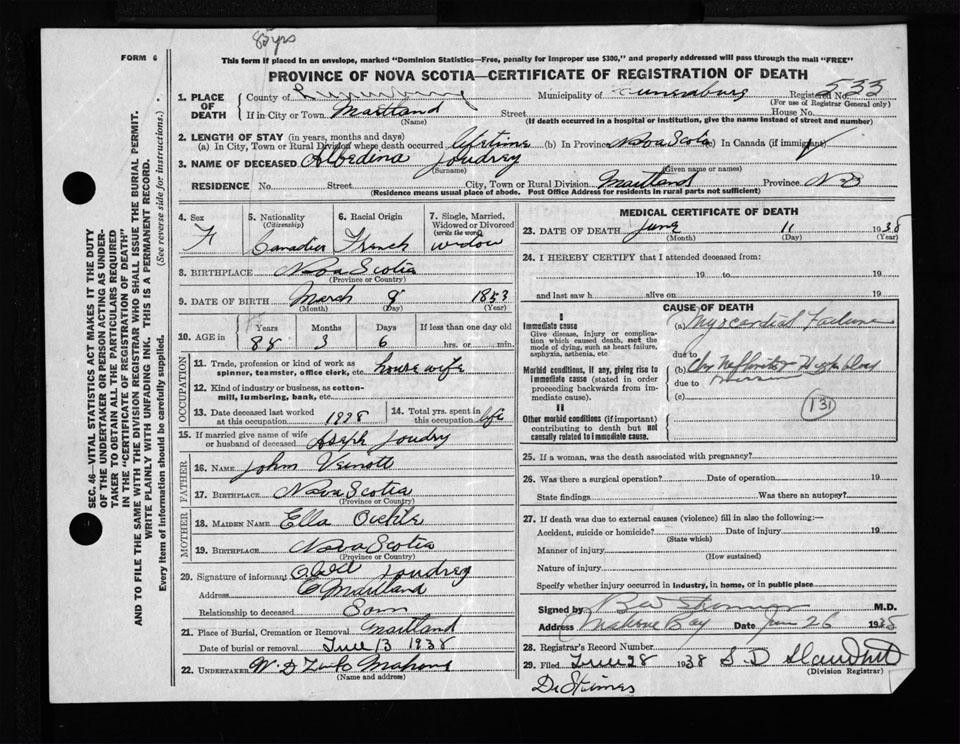 85 yrs
FORM 6
This form if placed in an envelope, marked "Dominion Statistics—Free, penalty for improper use $300," and properly addressed will pass through the mail "FREE"
PROVINCE OF NOVA SCOTIA—CERTIFICATE OF REGISTRATION OF DEATH
SEC. 46—VITAL STATISTICS ACT MAKES IT THE DUTY
OF THE UNDERTAKER OR PERSON ACTING AS UNDER-
TAKER TO OBTAIN ALL THE PARTICULARS REQUIRED
IN THE "CERTIFICATE OF REGISTRATION OF DEATH"
AND TO FILE THE SAME WITH THE DIVISION REGISTRAR WHO SHALL ISSUE THE BURIAL PERMIT.
WRITE PLAINLY WITH UNFADING INK. THIS IS A PERMANENT RECORD.
Every item of information should be carefully supplied. (See reverse side for instructions.)
1. PLACE OF DEATH County of Lunenburg Municipality of Lunenburg Registered No. 533
(For use of Registrar General only)
If in City or Town Maitland Street House No.
(Name) (If death occurred in a hospital or institution, give the name instead of street and number)
2. LENGTH OF STAY (in years, months and days)
(a) In City, Town or Rural Division where death occurred lifetime (b) In Province Nova Scotia (c) In Canada (if immigrant)
3. NAME OF DECEASED Albedina Joudrey
(Surname) (Given name or names)
RESIDENCE No. Street City, Town or Rural Division Maitland Province N S
(Residence means usual place of abode. Post Office Address for Residents in rural parts not sufficient)
4. Sex F
5. Nationality (Citizenship) Canadian
6. Racial Origin French
7. Single, Married, Widowed or Divorced (write the word) widow
8. BIRTHPLACE Nova Scotia
(Province or Country)
9. DATE OF BIRTH March 8 1853
(Month) (Day) (Year)
10. AGE in Years Months Days If less than one day old
85 3 6 hrs. or min.
OCCUPATION
11. Trade, profession or kind of work as spinner, teamster, office clerk, etc. house wife
12. Kind of industry or business, as cotton-mill, lumbering, bank, etc.
13. Date deceased last worked at this occupation 1928
14. Total yrs. spent in this occupation life
15. If married give name of wife or husband of deceased Joseph Joudry
FATHER
16. NAME John Veinott
17. BIRTHPLACE Nova Scotia
(Province or Country)
MOTHER
18. MAIDEN NAME Ella
19. BIRTHPLACE Nova Scotia
(Province or Country)
20. Signature of informant Obed Joudrey
Address Maitland
Relationship to deceased Son
21. Place of Burial, Cremation or Removal Maitland
Date of burial or removal June 13 1938
22. UNDERTAKER W. D Zinck Mahone
(Name and address)
MEDICAL CERTIFICATE OF DEATH
23. DATE OF DEATH June 11 1938
(Month) (Day) (Year)
24. I HEREBY CERTIFY that I attended deceased from:
19 to 19
and last saw h alive on 19
CAUSE OF DEATH
I
Immediate cause
Give disease, injury or complication which caused death, not the mode of dying, such as heart failure, asphyxia, asthenia, etc.
(a) Myocardial Failure
due to
Morbid conditions, if any, giving rise to immediate cause (stated in order proceeding backwards from immediate cause).
(b) Chr Nephritis
due to
(c)
131
II
Other morbid conditions (if important) contributing to death but not causally related to immediate cause.
25. If a woman, was the death associated with pregnancy?
26. Was there a surgical operation? Date of operation 19
State findings Was there an autopsy?
27. If death was due to external causes (violence) fill in also the following:—
Accident, suicide or homicide? Date of injury 19
(State which)
Manner of injury
(How sustained)
Nature of injury
Specify whether injury occurred in industry, in home, or in public place
Signed by M.D.
Address Mahone Bay Date June 26 1938
28. Registrar's Record Number
29. Filed June 28 1938 S. D
(Division Registrar)